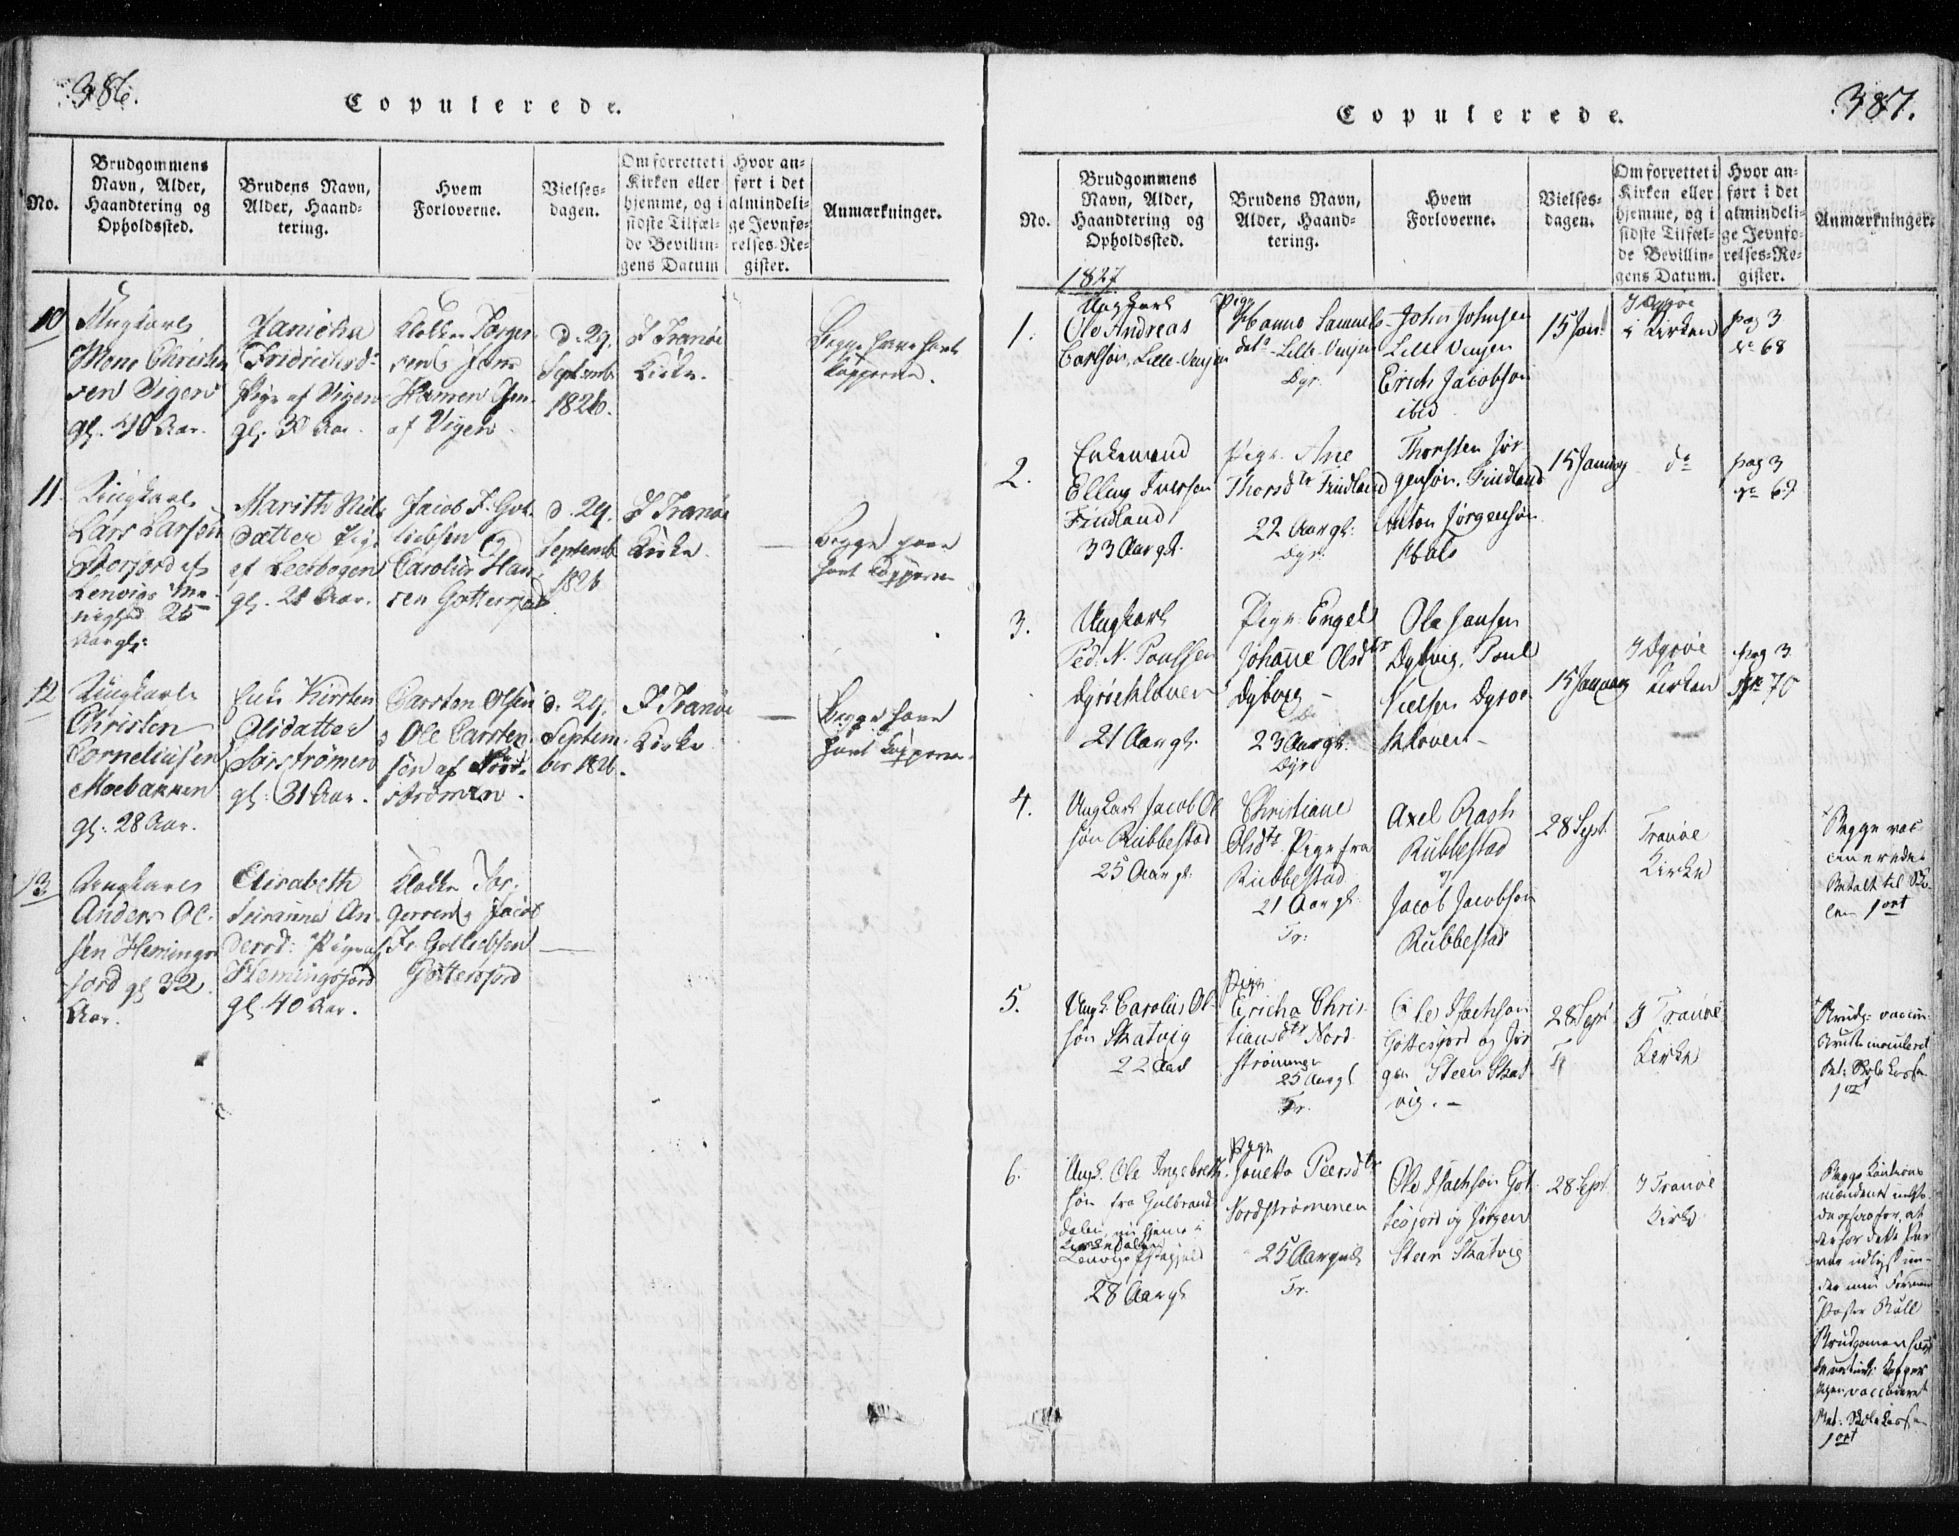 386.
Copulerede.
No.
Brudgommens
Navn, Alder,
Haandtering og
Opholdssted.
Brudens Navn,
Alder, Haand-
tering.
Hvem
Forloverne.
Vielses-
dagen.
Om forrettet i
Kirken eller
hjemme, og i
sidste Tilfæl-
de Bevillin-
gens Datum
Hvor an-
ført i det
almindeli-
ge Jevnfø-
relses-Re-
gister.
Anmærkninger.
10
Ungkarl
Mons Christen
sen Vigen
gl. 40 Aar.
Janicha
Fridrichsd:
Pige af Vigen
gl. 30 Aar
Klokker Torger
sen Jens
af Vigen
d. 29.
Septemb
1826.
I Tranøe
Kirke.
Begge have havt
Kopperne.
11.
Ungkarl
Lars Larsen
af
Lenvigs Me-
nighed 25
Aar gl:
Marith Niels
Datter Pige
af Leerbogen
gl. 21 Aar.
Jacob F. Got
liebsen og
Carolius Han
sen Gottesfjord
d. 29.
Septemb
1826
I Tranøe
Kirke.
Begge have
havt Kopperne
12
Ungkarl
Christen
Corneliusen
Moebakken
gl: 28 Aar.
Enke Kirsten
Olsdatter
Sørstrømen
gl: 31 Aar.
Carsten Olsen
Ole Carsten
sen af Sør
strømen.
d. 29.
Septem
ber 1826.
I Tranøe
Kirke
Begge have
havt Kopperne.
13
Ungkarl
Anders Ol-
sen Hemings
fjord gl 32
Aar.
Elisabeth
Susanna An
dersd: Pige af
Hemingsfjord
gl. 40 Aar.
Klokker Tor-
gersen Jacob
Fr Gotliebsen
Gottesfjord
387.
Copulerede.
No.
Brudgommens
Navn, Alder,
Haandtering og
Opholdssted.
Brudens Navn,
Alder, Haand-
tering.
Hvem
Forloverne.
Vielses-
dagen.
Om forrettet i
Kirken eller
hjemme, og i
sidste Tilfæl-
de Bevillin-
gens Datum.
Hvor an-
ført i det
almindeli-
ge Jevnfø-
relses-Re-
gister.
Anmærkninger.
1827
1.
Ungkarl
Ole Andreas
Carlsøn, Lille-Vinjen
Pige
Hanna Samuels
datr. Lille-Vinjen
Dyr.
John Johnsen
Lille Vinjen
Erich Jacobsøn
ibid
15 Jan:
I Dyrøe
Kirken
pag 3
No 68
2.
Enkemand
Elling Iversen
Findland
33 Aar gl.
Pige Ane
Thorsdtr Findland
22 Aar gl.
Dyr.
Thorsten Jør
gensøn. Findland
Anton Jørgensøn
15 January
do
pag 3
No 69
3.
Ungkarl
Ped. N. Poulsen
Dyrøeklover
21 Aar gl.
Pige Engel
Johanne Olsdtr
Dybvig
23 Aar gl.
Dyr
Ole Hansen
Dybvig. Poul
Nielsen Dyrøe
klover
15 January
I Dyrøe
kirken
pag 3
No 70
4.
Ungkarl Jacob Ol
søn Rubbestad
25 Aar gl.
Christiane
Olsdtr Pige fra
Rubbestad
21 Aar gl.
Tr:
Axel Rash
Rubbestad
og
Jacob Jacobsøn
Rubbestad
28 Sept.
Tranøe
Kirke
Begge vac-
cinerede.
Betalt til Sko-
len 1 ort
5.
Ungk. Carolus Ol
søn Skatvig
22 Aar
Pige
Ericha Chris
tiansdtr Nord
strømmen
25 Aar gl
Tr.
Ole Isachsøn
Gottesfjord og Jør
gen Steen Skat
vig.
28 Sept
I Tranøe
Kirke
Brudg: vaccin
Bet: Skole Kassen
1 ort
6.
Ungk. Ole Ingebreth
søn fra Gulbrands
dalen, nu hjemme i
Lenvigs Pstgjeld
28 Aar gl
Pige
Jonetta Peersdtr
Nordstrømmen
25 Aar gml
Tr.
Ole Isachsøn Got
tesfjord og Jørgen
Steen Skatvig
28 Sept.
I Tranøe
Kirke
Begge Kautions
mændene
at
dette Par
var udlyst un-
der min Formand
Pastor Bull
Brudgommen havt
Kopper
vaccineret
Bet: Skole Kassen
1 ort